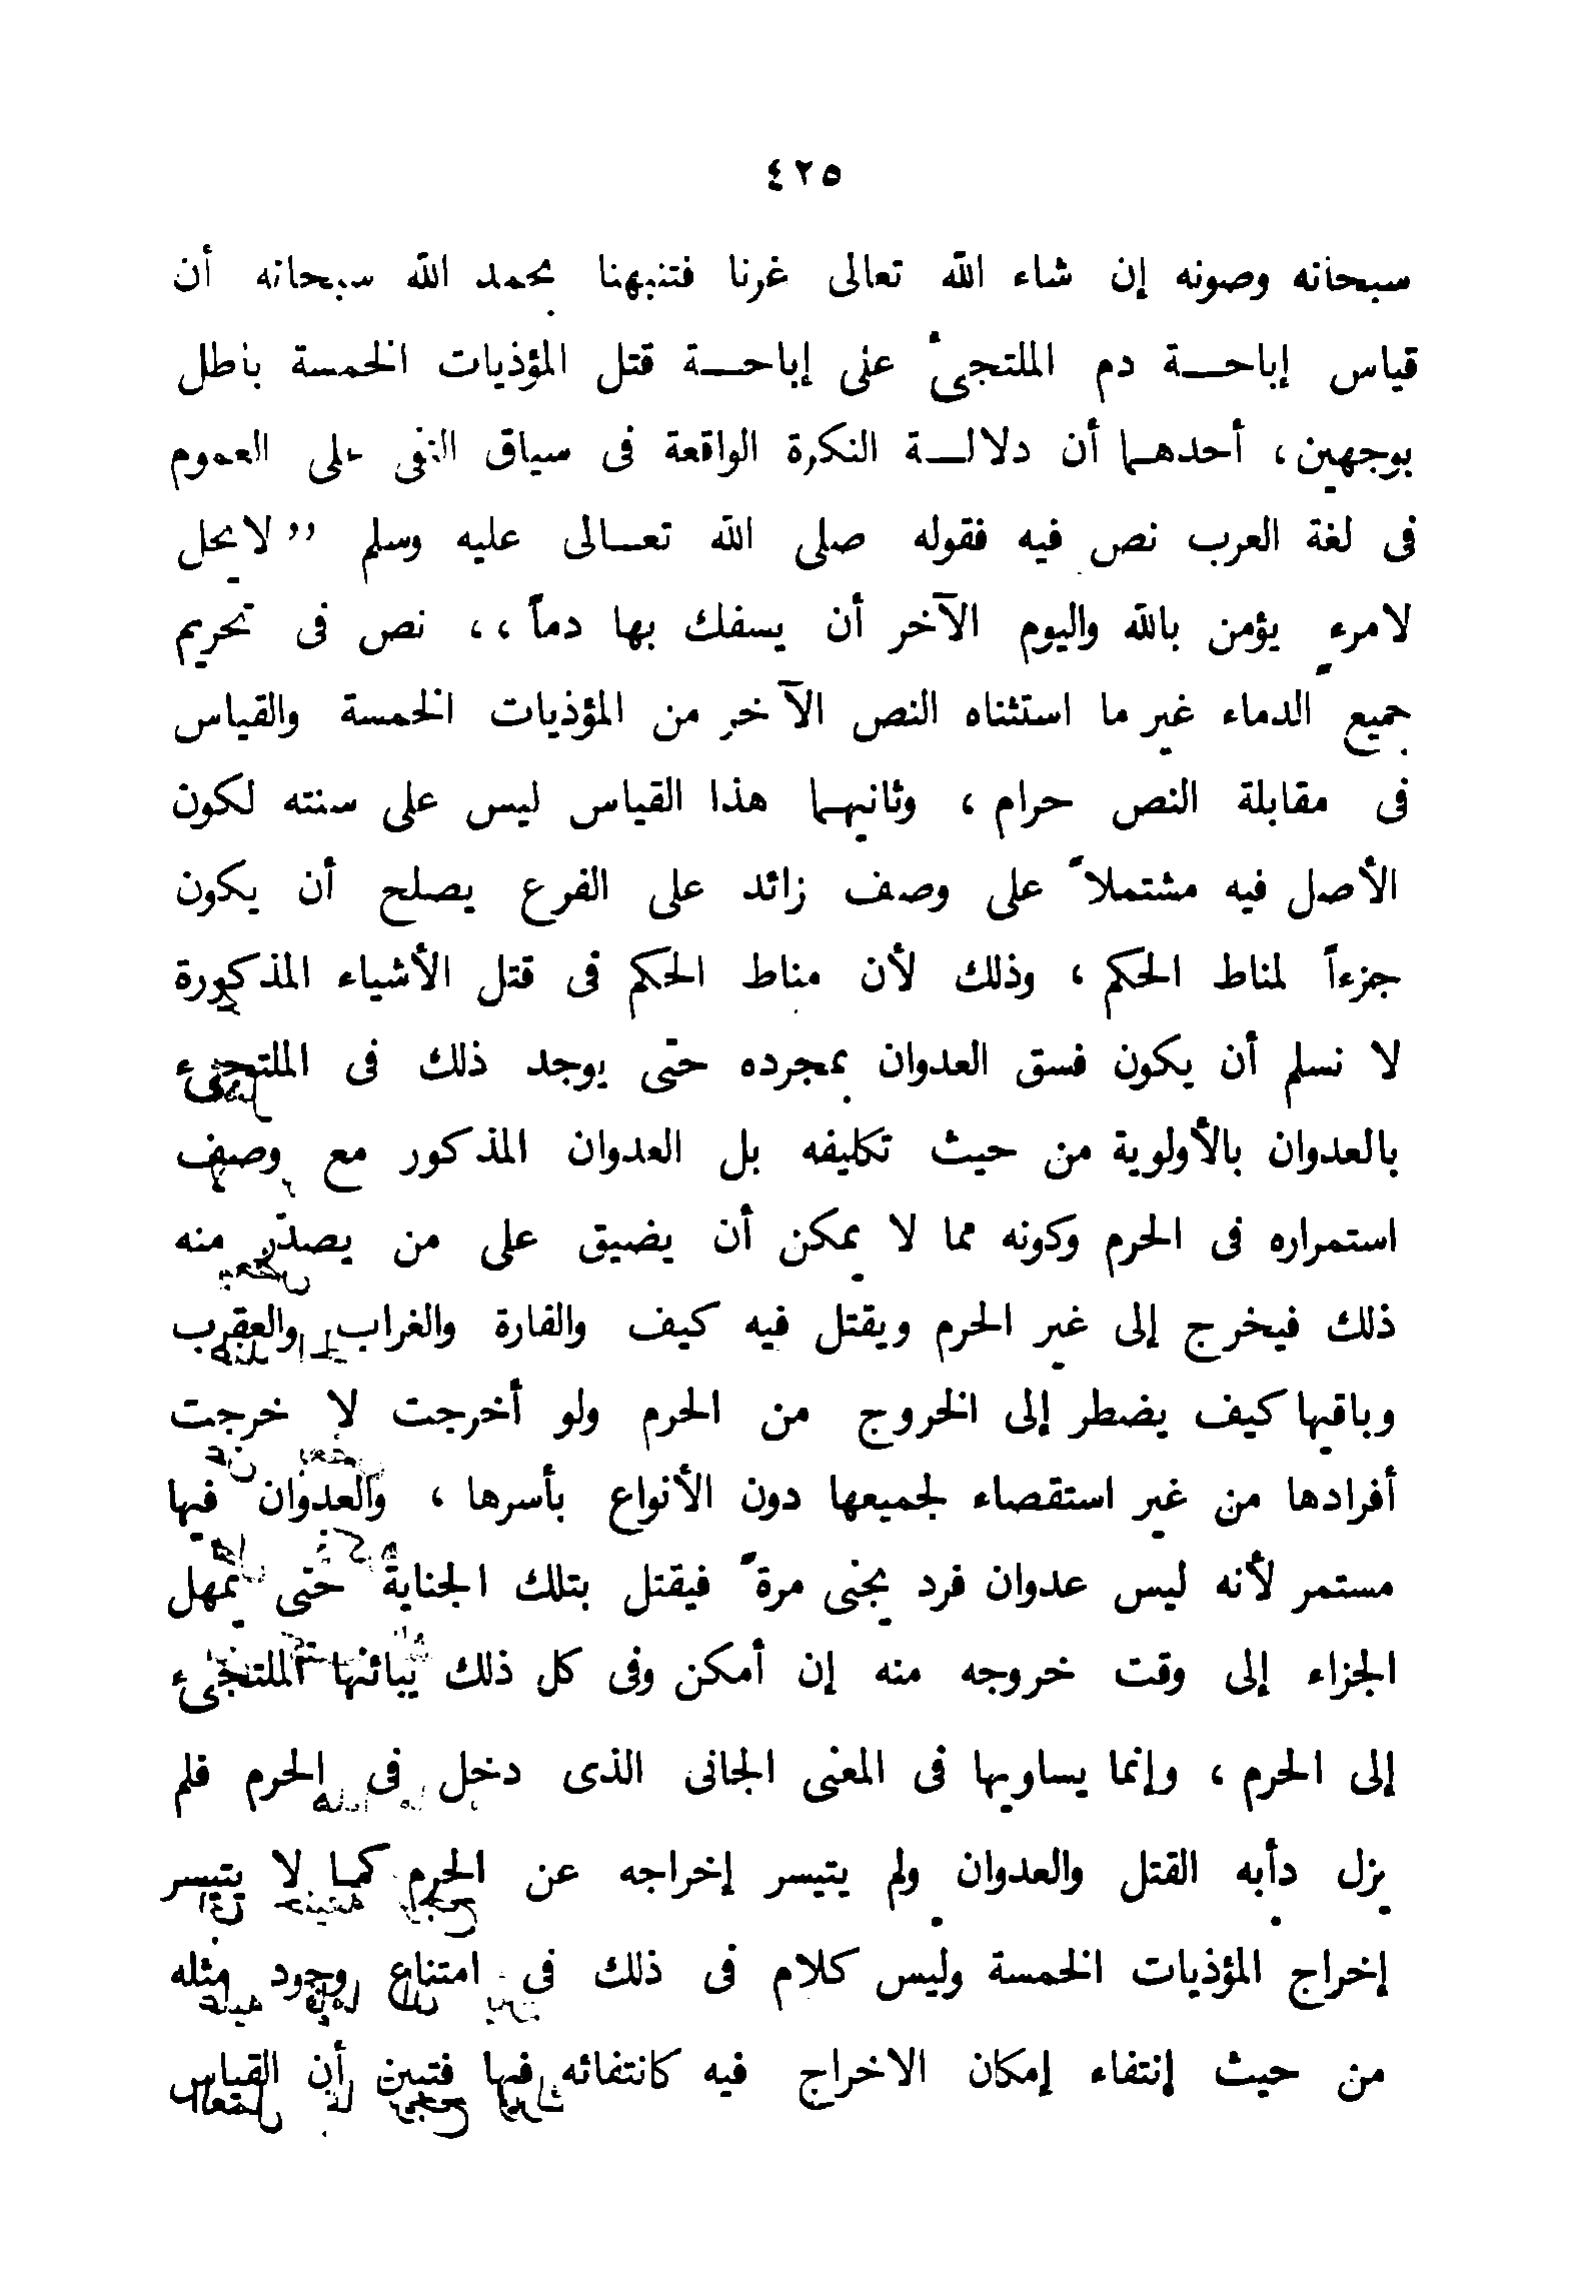 ٤٢٥
سبحانه وصونه إن شاء الله تعالى غرنا فتنبهنا بحمد الله سبحانه أن
قياس إباحة دم الملتجئ على إباحة قتل المؤذيات الخمسة باطل
بوجهين ، أحدهما أن دلالة النكرة الواقعة فى سياق النفى على العموم
فى لغة العرب نص فيه فقوله صلى الله تعالى عليه وسلم ,, لا يحل
لامرء يؤمن بالله واليوم الآخر أن يسفك بها دماً ،، نص فى تحريم
جميع الدماء غير ما استثناه النص الآخر من المؤذيات الخمسة والقياس
فى مقابلة النص حرام ، وثانيهما هذا القياس ليس على سنته لكون
الأصل فيه مشتملاً على وصف زائد على الفرع يصلح أن يكون
جزءاً لمناط الحكم ، وذلك لأن مناط الحكم فى قتل الأشياء المذكورة
لا نسلم أن يكون فسق العدوان بمجرده حتى يوجد ذلك فى الملتجىء
بالعدوان بالأولوية من حيث تكليفه بل العدوان المذكور مع وصف
استمراره فى الحرم وكونه مما لا يمكن أن يضيق على من يصدر منه
ذلك فيخرج إلى غير الحرم ويقتل فيه كيف والفارة والغراب والعقرب
وباقيها كيف يضطر إلى الخروج من الحرم ولو أخرجت لا خرجت
أفرادها من غير استقصاء لجميعها دون الأنواع بأسرها ، والعدوان فيها
مستمر لأنه ليس عدوان فرد يجنى مرة فيقتل بتلك الجناية حتى يمهل
الجزاء إلى وقت خروجه منه إن أمكن وفى كل ذلك يبائنها الملتجىء
إلى الحرم ، وإنما يساويها فى المعنى الجانى الذى دخل فى الحرم فلم
يزل دأبه القتل والعدوان ولم يتيسر إخراجه عن الحرم كما لا يتيسر
إخراج المؤذيات الخمسة وليس كلام فى ذلك فى امتناع وجود مثله
من حيث إنتفاء إمكان الاخراج فيه كانتفائه فيها فتبين أن القياس